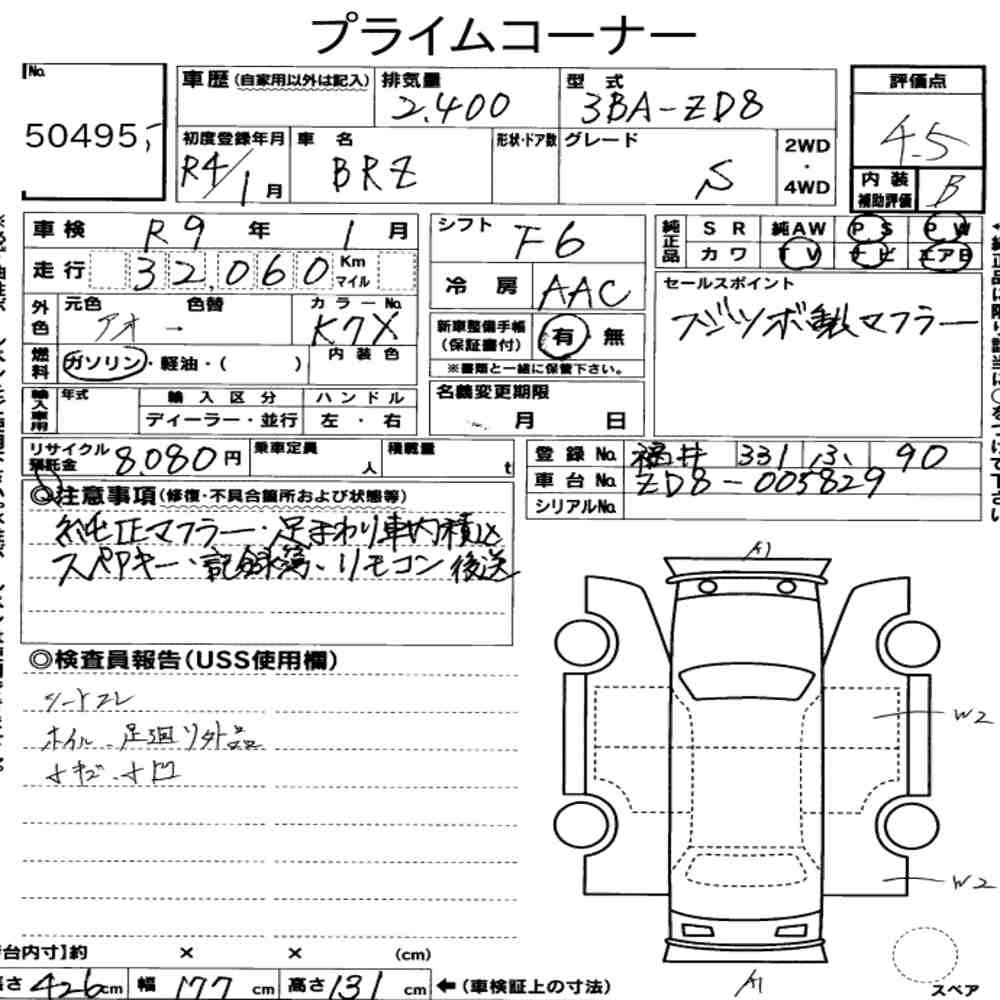 プライムコーナー
No. 50495
車歴(自家用以外は記入) 排気量 2.400 型式 3BA-ZD8 評価点 4.5
初度登録年月 R4/1月 車名 BRZ 形状・ドア数 グレード S 2WD・4WD 内装補助評価 B
車検 R9年 1月
走行 32,060 Km マイル
外色 元色 アオ → 色替 カラーNo. K7X
燃料 ガソリン・軽油・( ) 内装色
輸入車用 年式 輸入区分 ハンドル
ディーラー・並行 左・右
シフト F6
冷房 AAC
新車整備手帳(保証書付) 有 無
※書類と一緒に保管下さい。
名義変更期限
月 日
純正品 SR 純AW PS PW
カワ TV ナビ エアB
セールスポイント
フジツボ製マフラー
リサイクル預託金 8.080円 乗車定員 人 積載量 t
登録No. 福井 331 90
車台No. ZD8-005829
シリアルNo.
◎注意事項(修復・不具合箇所および状態等)
純正マフラー・足まわり車内積込
スペアキー・記録簿・リモコン 後送
◎検査員報告(USS使用欄)
シートコレ
ホイル、足廻リ外品
小キズ、小凹
A1
W2
W2
A1
スペア
台内寸】約 × × (cm)
長さ 426cm 幅 177cm 高さ 131cm ←(車検証上の寸法)